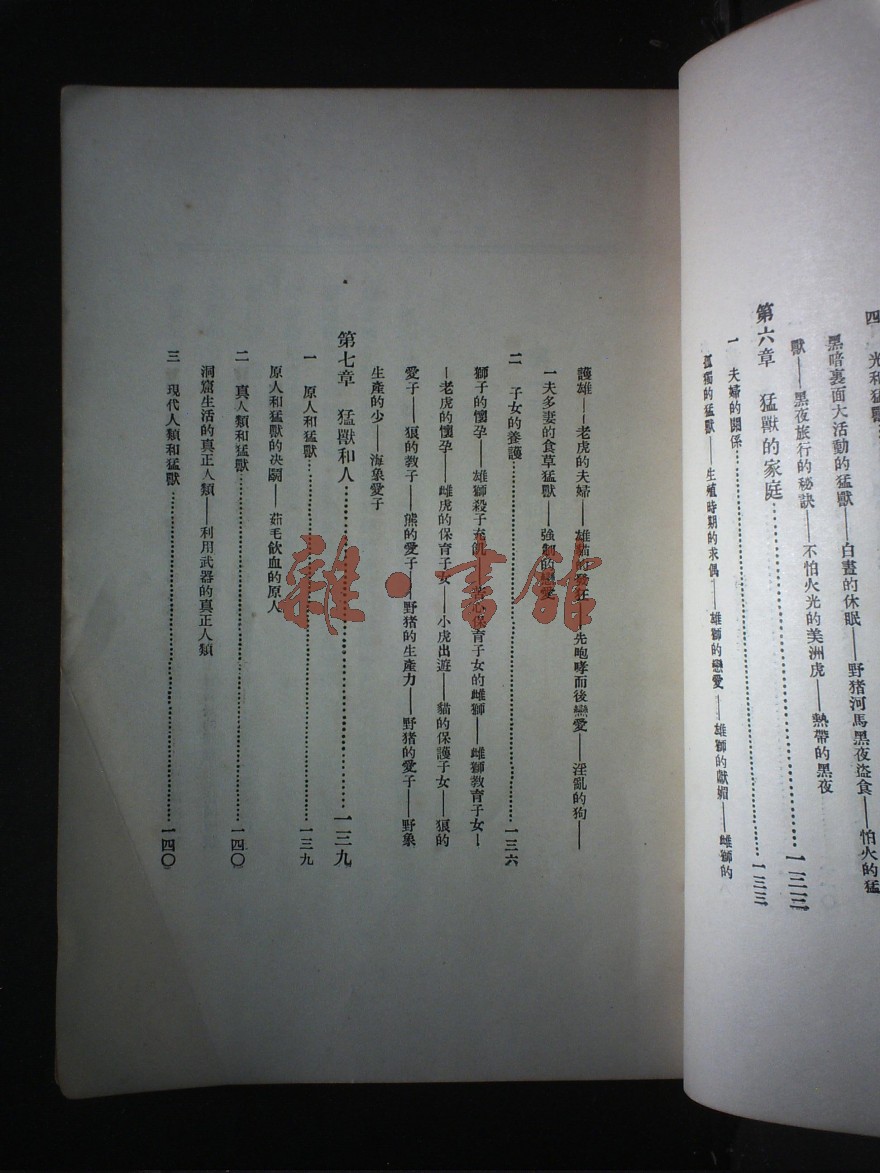 四 光和猛獸
黑暗裏面大活動的猛獸——白晝的休眠——野猪河馬黑夜盜食——怕火的猛
獸——黑夜旅行的秘訣——不怕火光的美洲虎——熱帶的黑夜
第六章 猛獸的家庭…………一三三
一 夫婦的關係…………一三三
孤獨的猛獸——生殖時期的求偶——雄獅的戀愛——雄獅的獻媚——雌獅的
護雄——老虎的夫婦——雄貓的發狂——先咆哮而後戀愛——淫亂的狗——
一夫多妻的食草猛獸——強制的戀愛
二 子女的養護…………一三六
獅子的懷孕——雄獅殺子充飢——苦心保育子女的雌獅——雌獅教育子女—
—老虎的懷孕——雌虎的保育子女——小虎出遊——貓的保護子女——狼的
愛子——狼的教子——熊的愛子——野猪的生產力——野猪的愛子——野象
生產的少——海象愛子
第七章 猛獸和人…………一三九
一 原人和猛獸…………一三九
原人和猛獸的決鬬——茹毛飲血的原人
二 真人類和猛獸…………一四〇
洞窟生活的真正人類——利用武器的真正人類
三 現代人類和猛獸…………一四〇
雜·書館